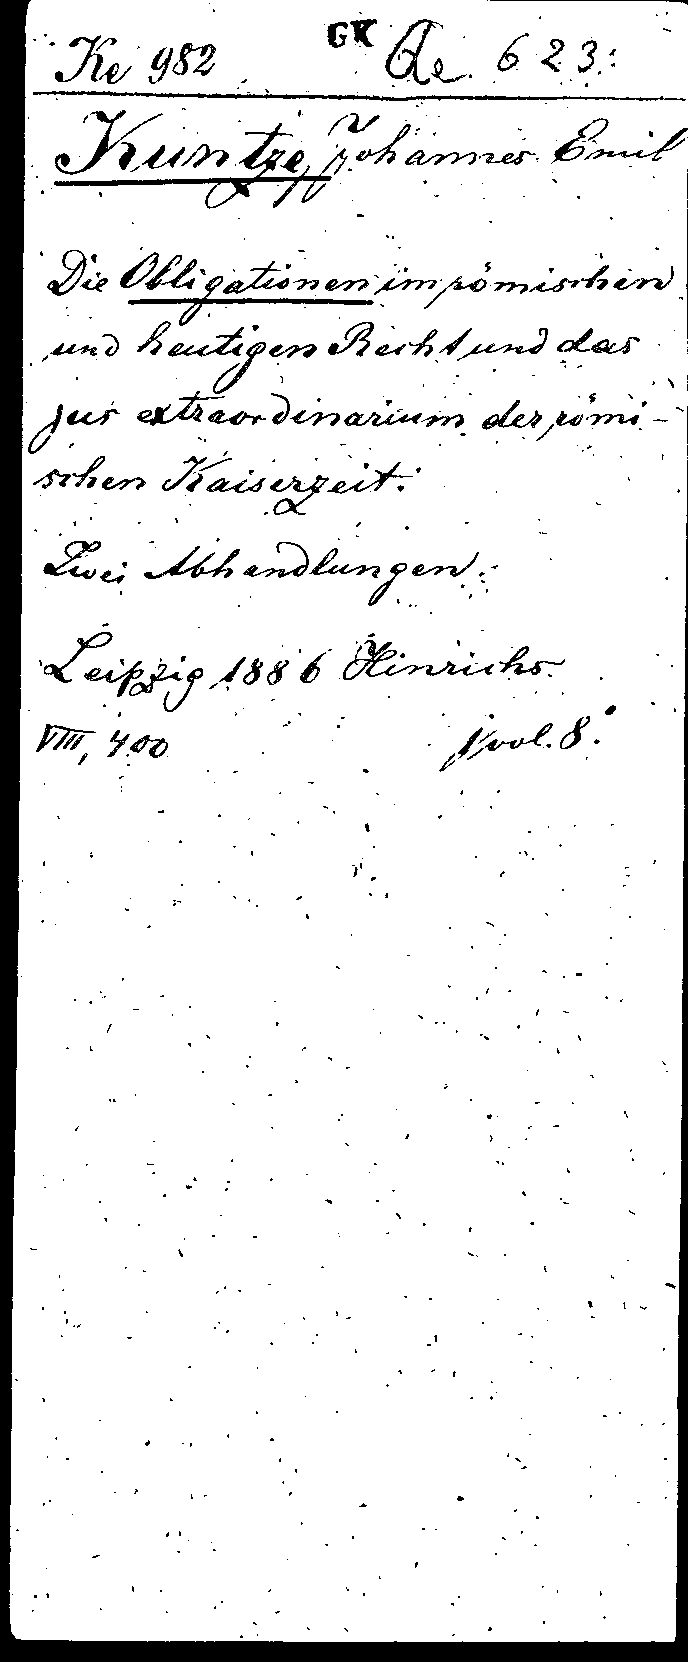 Ke 982 GK Qe. 623.
Kuntze, Johannes Emil
Die Obligationen im römischen
und heutigen Recht und das
jus extraordinarium der römi-
schen Kaiserzeit.
Zwei Abhandlungen.
Leipzig 1886 Hinrichs.
VIII, 400 1 vol. 8°.